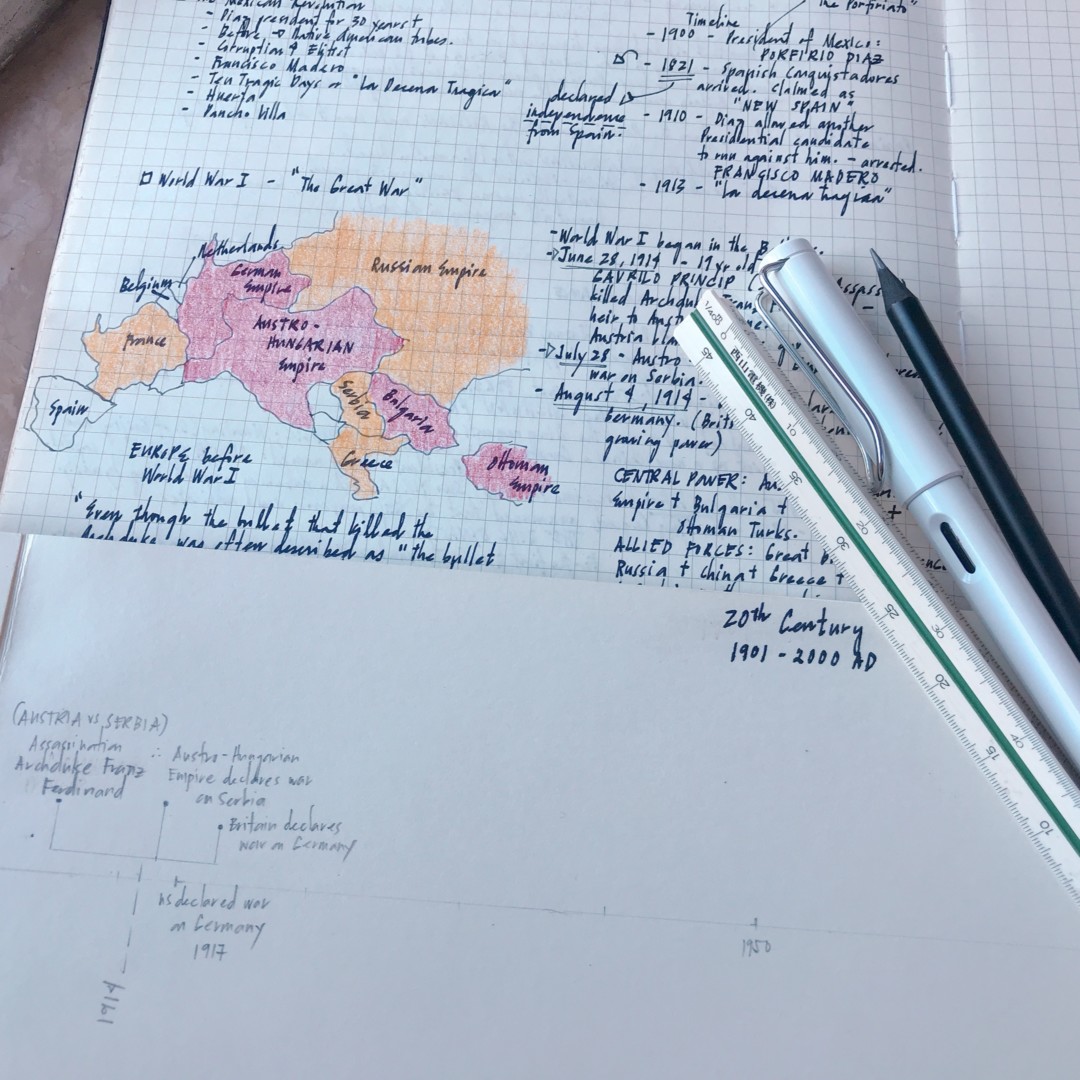 The Mexican Revolution
- Diaz president for 30 years +
- Before → Native American tribes.
- Corruption & Elitist
- Francisco Madero
- Ten Tragic Days or "La Decena Tragica"
- Huerta
- Pancho Villa
the Porfiriato"
Timeline
- 1900 - President of Mexico:
PORFIRIO DIAZ
- 1821 - Spanish Conquistadores
arrived. Claimed as
"NEW SPAIN"
declared
independence
from Spain.
- 1910 - Diaz allowed another
Presidential candidate
to run against him. - arrested.
FRANCISCO MADERO
- 1913 - "La decena tragica"
World War I - "The Great War"
Netherlands
German
Empire
Belgium
Russian Empire
France
AUSTRO-
HUNGARIAN
Empire
Spain
Serbia
Bulgaria
Greece
Ottoman
Empire
EUROPE before
World War I
"Even though the bullet that killed the
Archduke was often described as "the bullet
- World War I began in the
→ June 28, 1914 - 19 yr old
GAVRILO PRINCIP (
killed
heir to
Austria
→ July 28 - Austro
war on Serbia.
- August 4, 1914 -
Germany. (Brits
growing power)
CENTRAL POWER:
Empire + Bulgaria +
Ottoman Turks.
ALLIED FORCES: Great
Russia + China + Greece +
20th Century
1901 - 2000 AD
(AUSTRIA VS SERBIA)
Assassination
Archduke Franz
Ferdinand
Austro-Hungarian
Empire declares war
on Serbia
Britain declares
war on Germany
US declared war
on Germany
1917
1914
1950
1/400
0
45
40
35
30
25
20
15
10
10
20
30
40